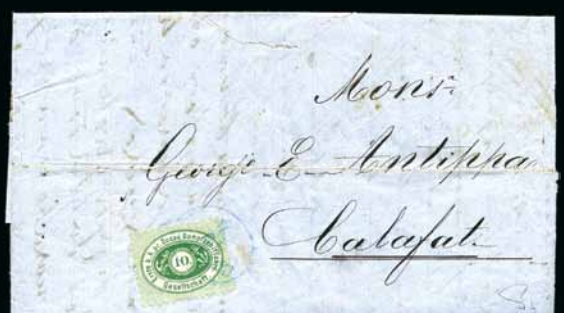 Mons:
Georgi E. Antippa
Calafat
Erste k.k. pr. Donau Dampfschiffahrt
10
Gesellschaft